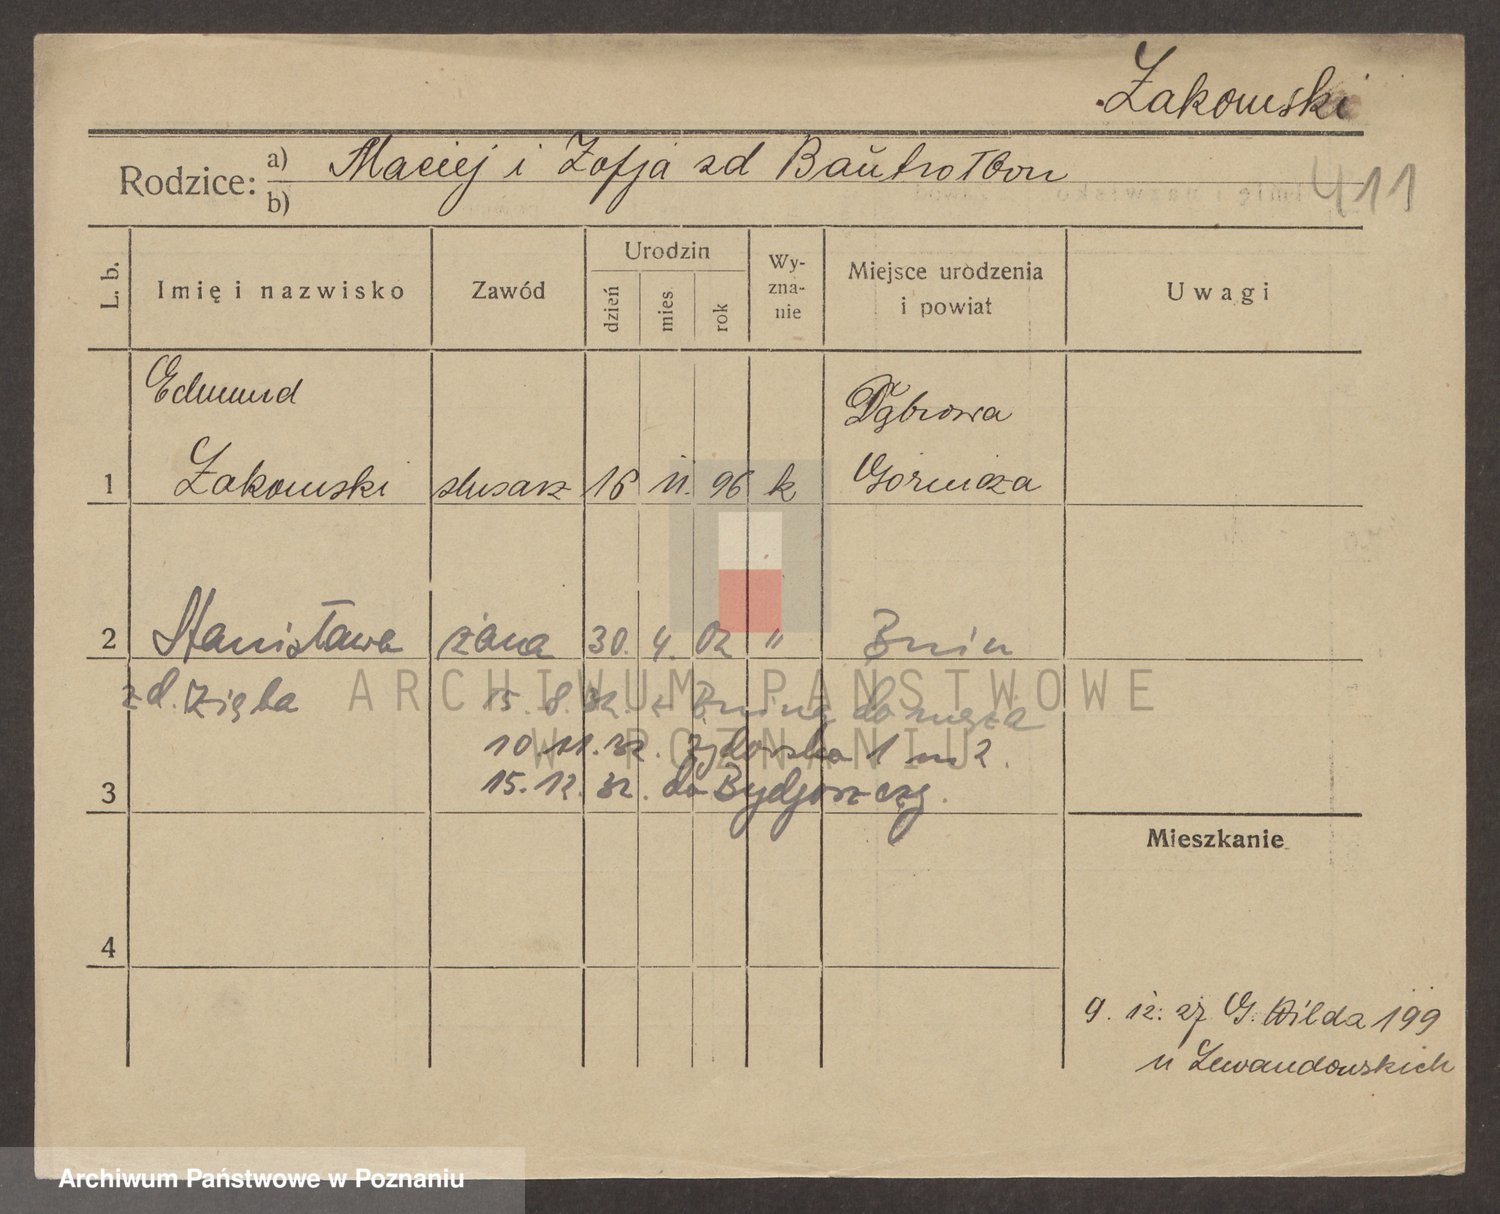 Żakowski
Rodzice: a) Maciej i Zofja zd
b)
411
L. b.
Imię i nazwisko
Zawód
Urodzin
dzień
mies
rok
Wy-
zna-
nie
Miejsce urodzenia
i powiat
Uwagi
Edmund
Dąbrowa
1 Żakowski ślusarz 16 11. 96 k Górnicza
2 Stanisława żona 30. 4. 02 " Bnin
zd. Zięba 15. 8. 32. z Bnina do męża
10. 11. 32. 1 m 2.
3 15. 12. 32. do Bydgoszczy.
Mieszkanie
4
9. 12. 27 G. Wilda 199
u Lewandowskich
ARCHIWUM PAŃSTWOWE
W POZNANIU
Archiwum Państwowe w Poznaniu